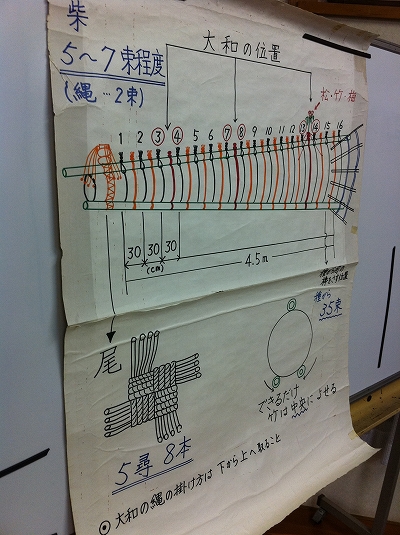 柴
5〜7束程度
(縄…2束)
大和の位置
松・竹・梅
1 2 ③ ④ 5 6 ⑦ ⑧ 9 10 11 12 ⑬ ⑭ 15 16
30 30 30
(cm)
4.5m
35束
尾
5尋 8本
できるだけ
竹は中央によせる
◎ 大和の縄の掛け方は 下から上へ取ること